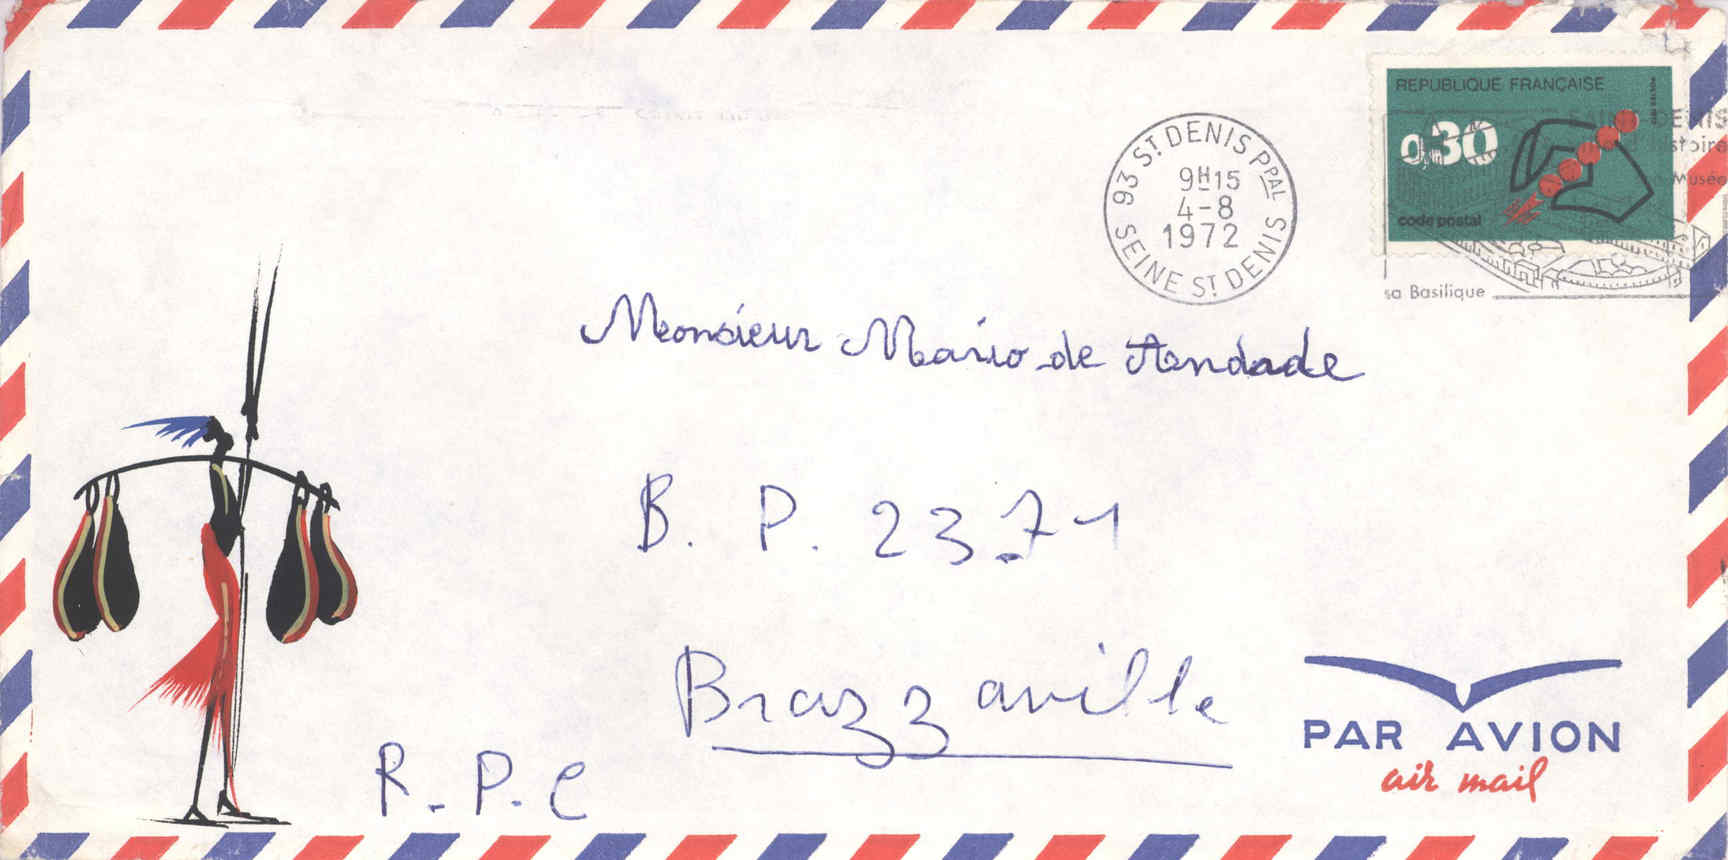 REPUBLIQUE FRANÇAISE
0,30
code postal
93 ST DENIS PPAL
9H15
4-8
1972
SEINE ST DENIS
SAINT DENIS
Histoire
Musée
sa Basilique
Monsieur Mario de Andade
B. P. 2371
Brazzaville
R.P.C
PAR AVION
air mail